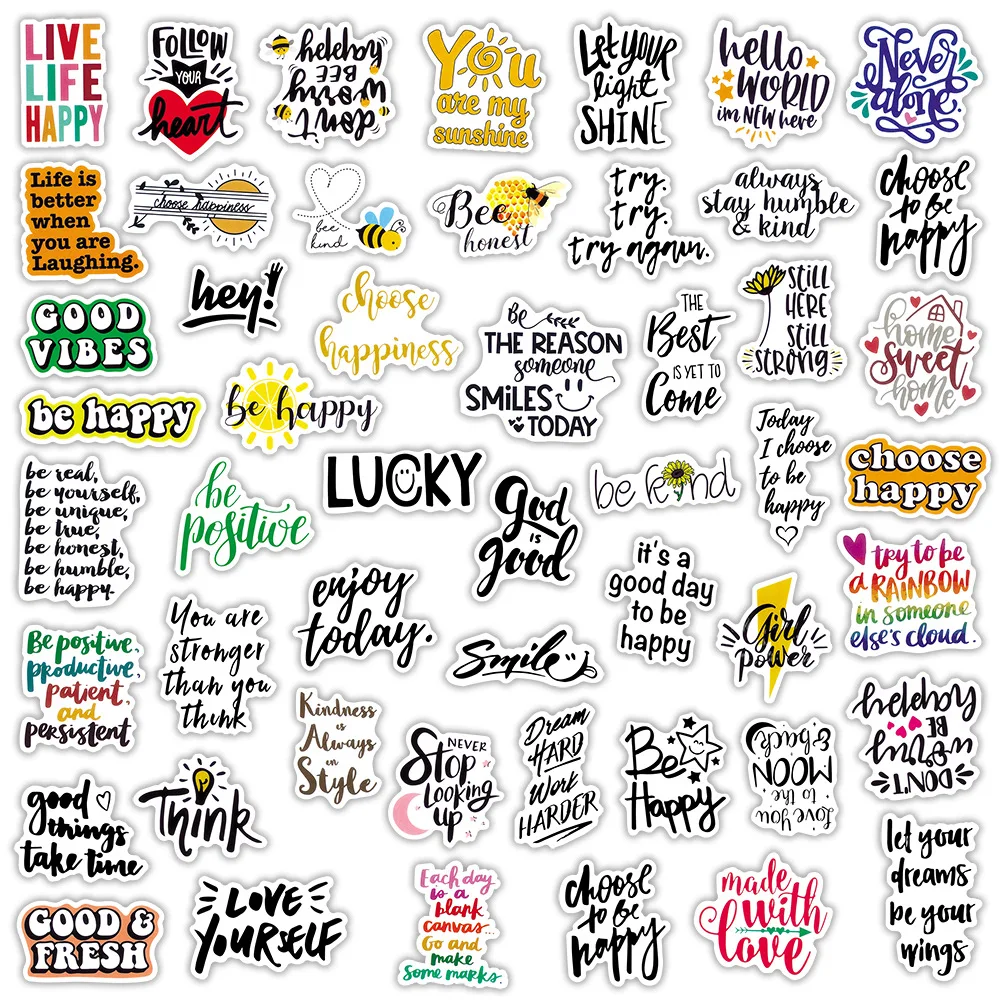 LIVE
LIFE
HAPPY
FOLLOW
YOUR
heart
don't
worry
BEE
happy
You
are my
sunshine
Let YOUR
light
SHINE
hello
WORLD
im NEW here
Never
alone.
Life is
better
when
you are
Laughing.
choose happiness
bee
kind
Bee
honest
try.
try.
try again.
always
stay humble
& kind
choose
to be
happy
GOOD
VIBES
hey!
choose
happiness
Be
THE REASON
someone
SMiLES
TODAY
THE
Best
IS YET TO
Come
STILL
HERE
STILL
STRONG
home
sweet
home
be happy
be happy
be real,
be yourself,
be unique,
be true,
be honest,
be humble,
be happy.
be
positive
LUCKY
God
is
good
be kind
Today
I choose
to be
happy
choose
happy
enjoy
today.
it's a
good day
to be
happy
Girl
power
try to be
a RAINBOW
in someone
else's cloud.
Be positive,
productive,
patient,
and
persistent
You are
stronger
than you
think
Smile
Kindness
is
Always
in
Style
NEVER
Stop
Looking
up
Dream
HARD
Work
HARDER
Be
Happy
Love you
to the
MOON
& back
DON'T
worry
BE
happy
good
things
take time
Think
let your
dreams
be your
wings
GOOD &
FRESH
LOVE
YOURSELF
Each day
is a
blank
canvas...
Go and
make
some marks.
choose
to be
happy
made
with
love